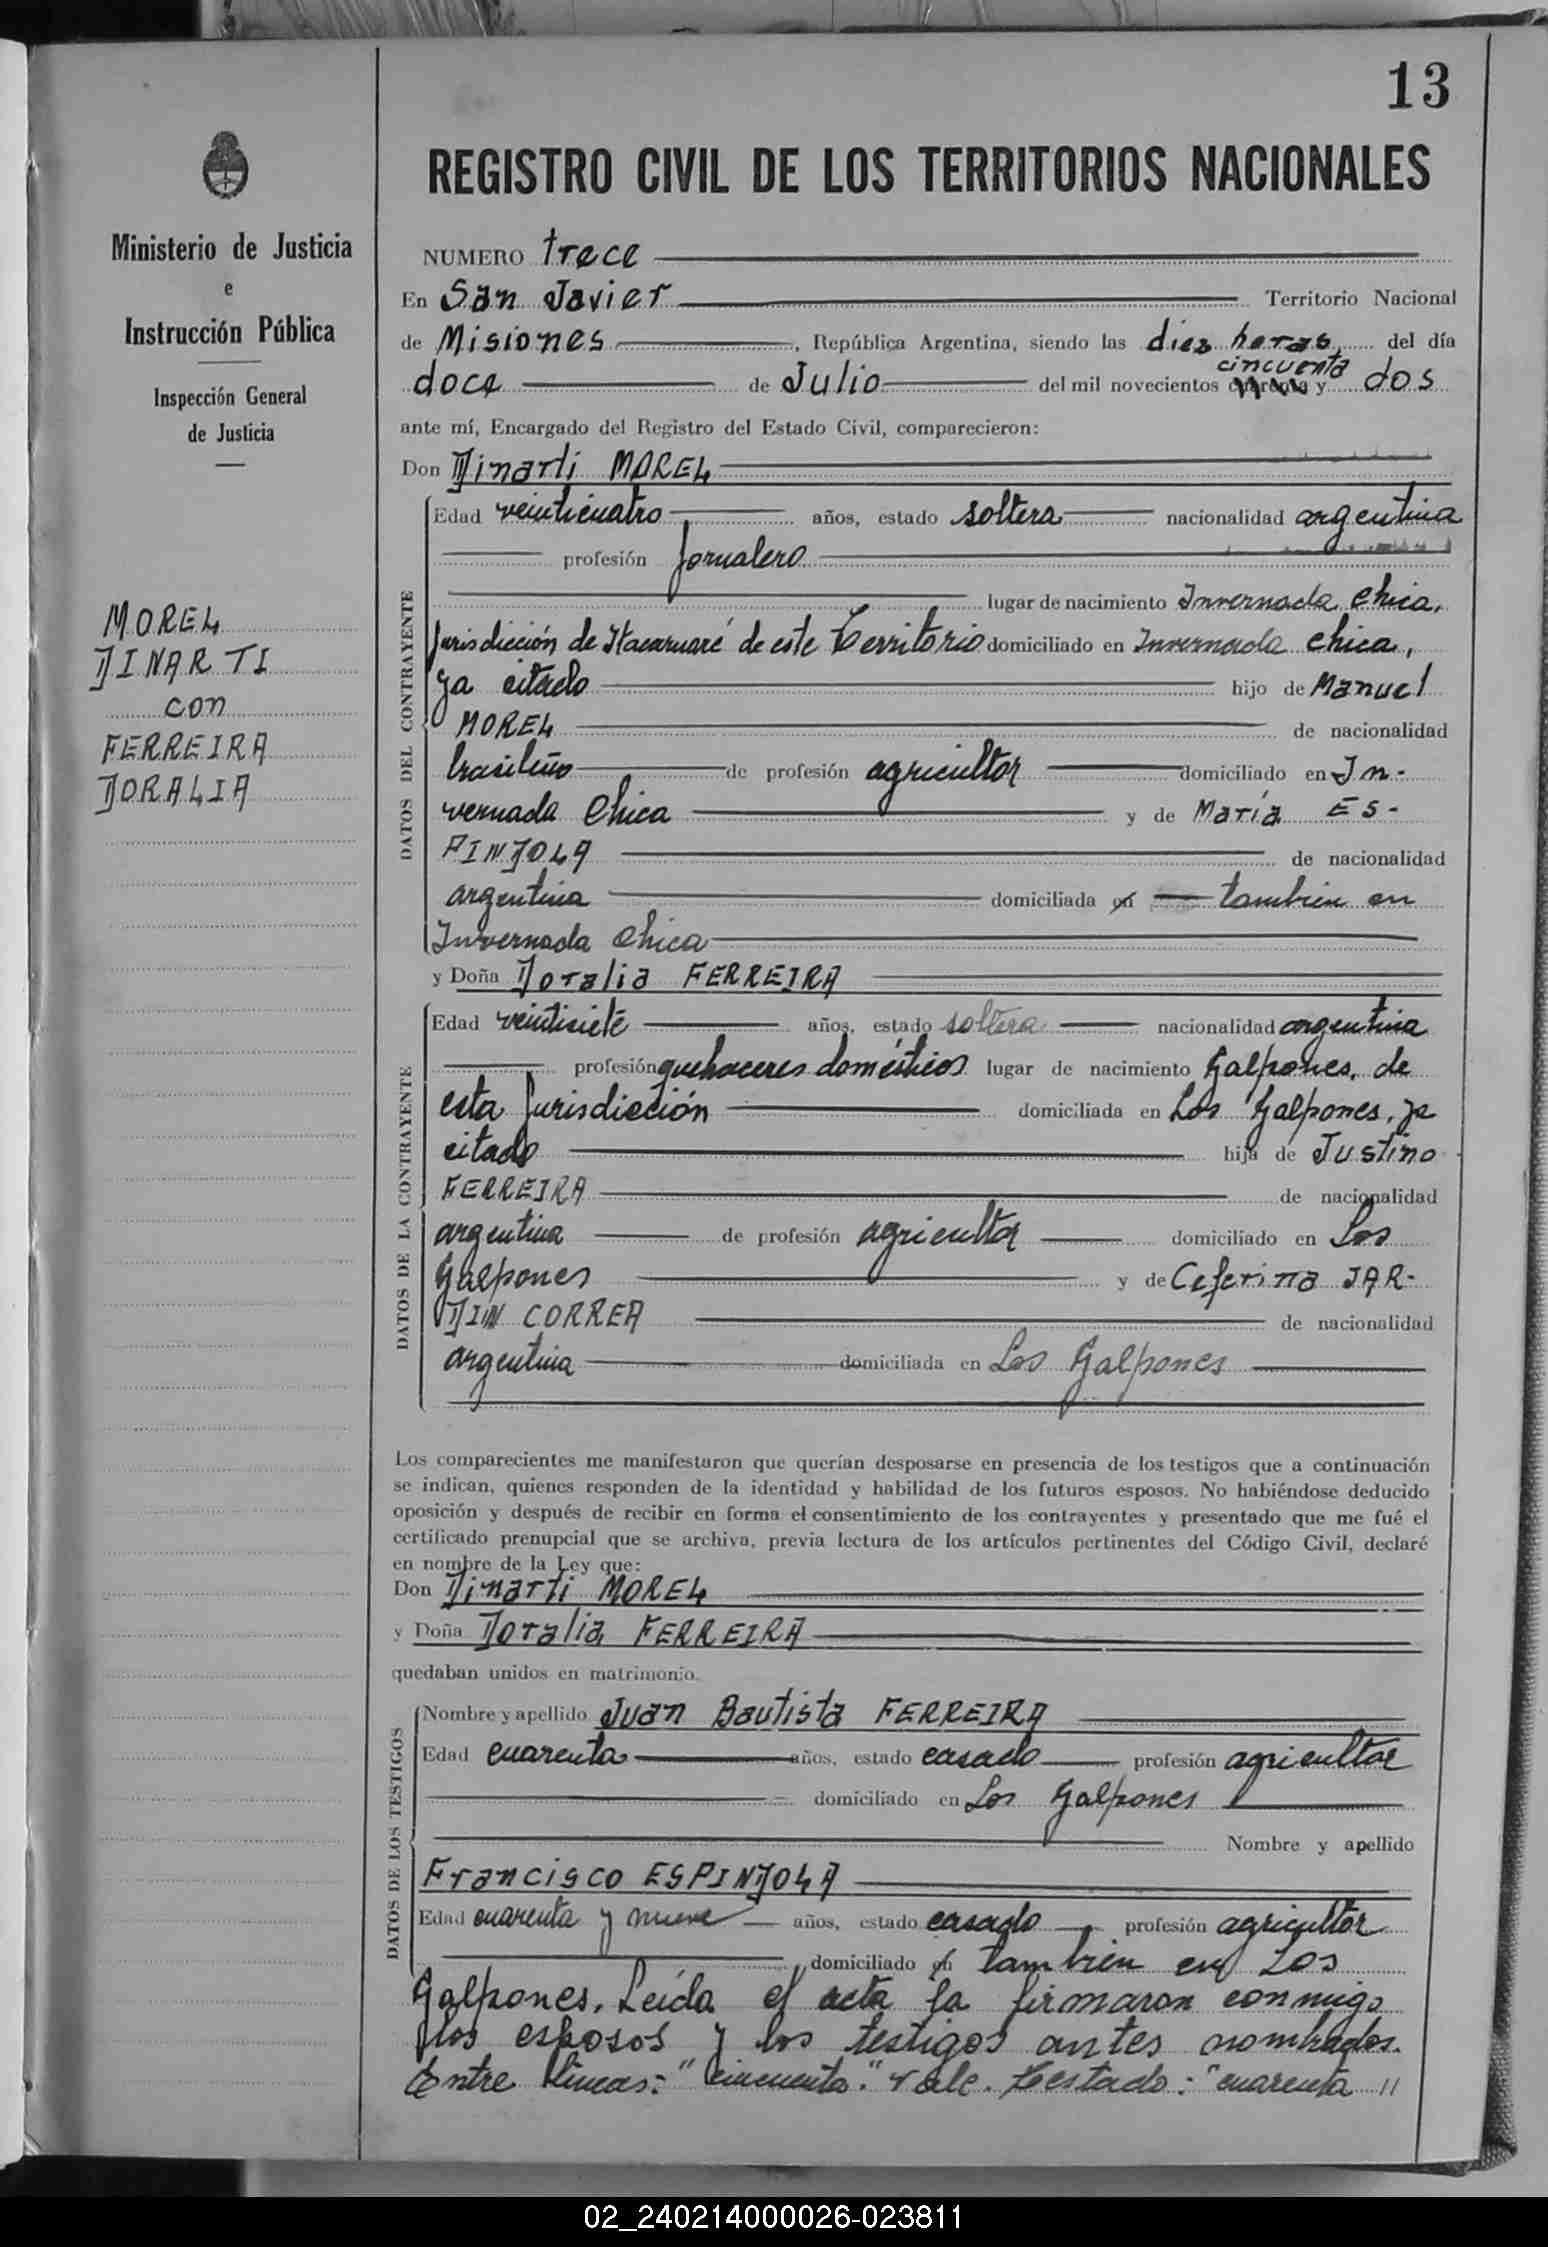 13
REGISTRO CIVIL DE LOS TERRITORIOS NACIONALES
Ministerio de Justicia
e
Instrucción Pública
Inspección General
de Justicia
MOREL
DINARTI
con
FERREIRA
DORALIA
NUMERO trece
En San Javier Territorio Nacional
de Misiones, República Argentina, siendo las diez horas del día
cincuenta
doce de Julio del mil novecientos cuarenta y dos
ante mí, Encargado del Registro del Estado Civil, comparecieron:
Don Dinarti MOREL
DATOS DEL CONTRAYENTE
Edad veinticuatro años, estado soltera nacionalidad argentina
profesión Jornalero
lugar de nacimiento Invernada Chica,
Jurisdicción de Itacaruaré de este Territorio domiciliado en Invernada Chica,
ya citado hijo de Manuel
MOREL de nacionalidad
brasileño de profesión agricultor domiciliado en In-
vernada Chica y de María ES-
PINDOLA de nacionalidad
argentina domiciliada en también en
Invernada Chica
y Doña Doralia FERREIRA
DATOS DE LA CONTRAYENTE
Edad veintisiete años, estado soltera nacionalidad argentina
profesión quehaceres domésticos lugar de nacimiento Galpones, de
esta Jurisdicción domiciliada en Los Galpones, ya
citado hija de Justino
FERREIRA de nacionalidad
argentina de profesión agricultor domiciliado en Los
Galpones y de Ceferina JAR-
DIN CORREA de nacionalidad
argentina domiciliada en Los Galpones
Los comparecientes me manifestaron que querían desposarse en presencia de los testigos que a continuación
se indican, quienes responden de la identidad y habilidad de los futuros esposos. No habiéndose deducido
oposición y después de recibir en forma el consentimiento de los contrayentes y presentado que me fué el
certificado prenupcial que se archiva, previa lectura de los artículos pertinentes del Código Civil, declaré
en nombre de la Ley que:
Don Dinarti MOREL
y Doña Doralia FERREIRA
quedaban unidos en matrimonio.
DATOS DE LOS TESTIGOS
Nombre y apellido Juan Bautista FERREIRA
Edad cuarenta años, estado casado profesión agricultor
domiciliado en Los Galpones
Nombre y apellido
Francisco ESPINDOLA
Edad cuarenta y nueve años, estado casado profesión agricultor
domiciliado en también en Los
Galpones. Leída el acta la firmaron conmigo
los esposos y los testigos antes nombrados.
Entre líneas: "cincuenta". Vale. Testado: "cuarenta"
02_240214000026-023811